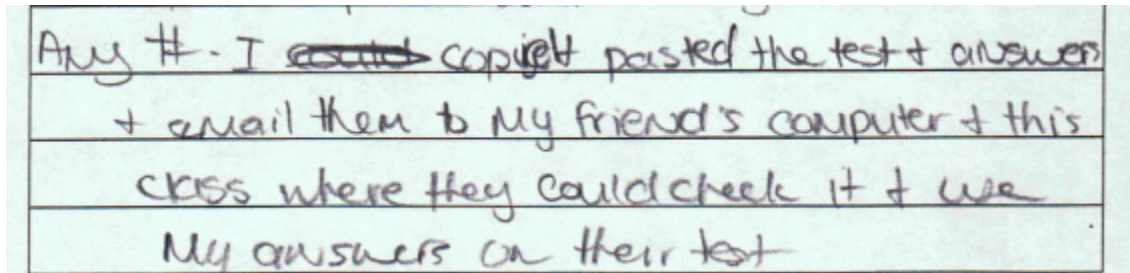 Any #. I copied + pasted the test + answers
+ email them to my friend's computer + this
class where they could check it + use
My answers on their test